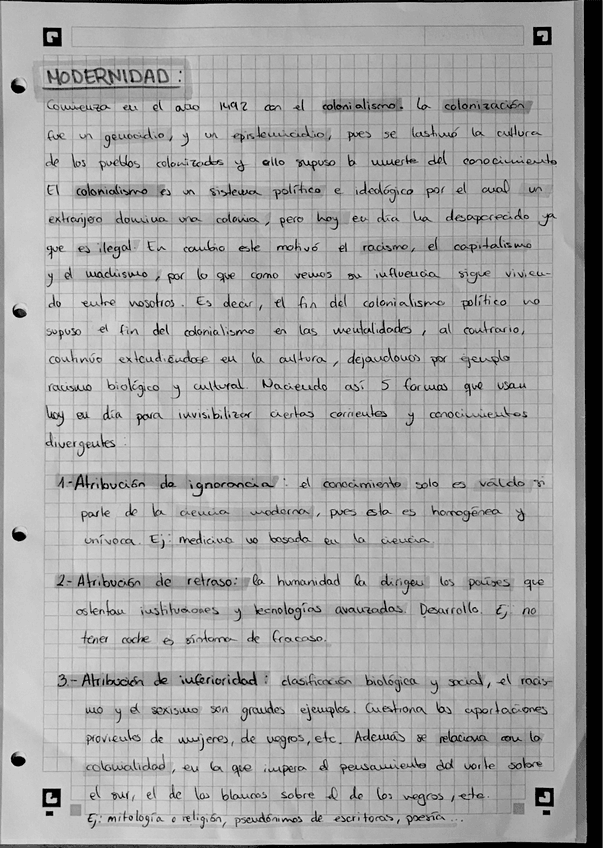 MODERNIDAD:
Comienza en el año 1492 con el colonialismo. La colonización
fue un genocidio, y un epistemicidio, pues se lastimó la cultura
de los pueblos colonizados y ello supuso la muerte del conocimiento
El colonialismo es un sistema político e ideológico por el cual un
extranjero domina una colonia, pero hoy en día ha desaparecido ya
que es ilegal. En cambio este motivó el racismo, el capitalismo
y el machismo, por lo que como vemos su influencia sigue vivien-
do entre nosotros. Es decir, el fin del colonialismo político no
supuso el fin del colonialismo en las mentalidades, al contrario,
continúo extendiéndose en la cultura, dejándonos por ejemplo
racismo biológico y cultural. Naciendo así 5 formas que usan
hoy en día para invisibilizar ciertas corrientes y conocimientos
divergentes:
1-Atribución de ignorancia: el conocimiento solo es valdo si
parte de la ciencia moderna, pues esta es homogénea y
unívoca. Ej: medicina no basada en la ciencia.
2-Atribución de retraso: la humanidad la dirigen los países que
ostentan instituciones y tecnologías avanzadas. Desarrollo. Ej no
tener coche es síntoma de fracaso.
3-Atribución de inferioridad: clasificación biológica y social, el racis-
mo y el sexismo son grandes ejemplos. Cuestiona las aportaciones
provientes de mujeres, de negros, etc. Además se relaciona con la
colonialidad, en la que impera el pensamiento del norte sobre
el sur, el de los blancos sobre el de los negros, etc.
Ej: mitología o religión, pseudónimos de escritoras, poesía...